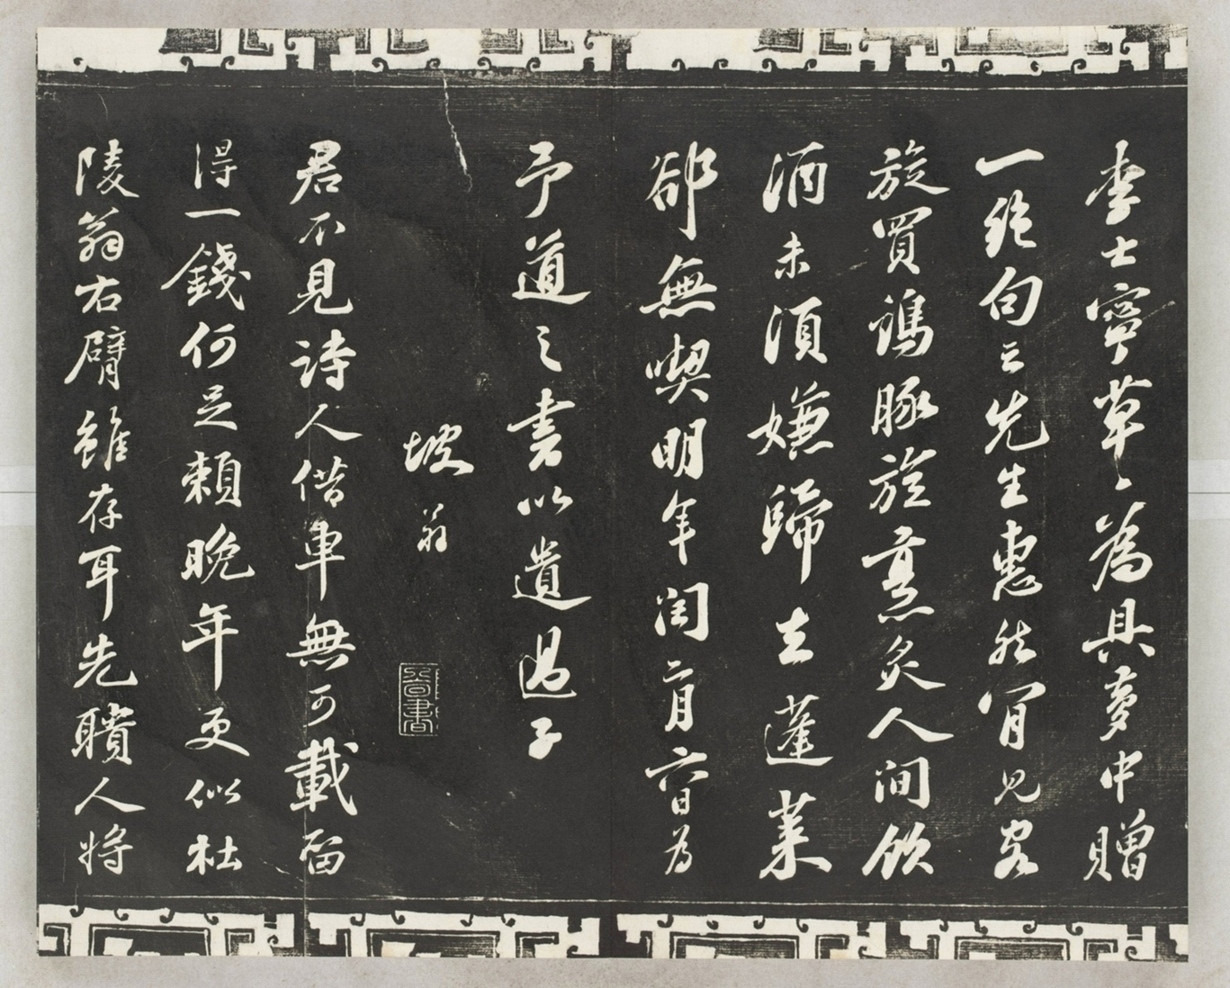 李士寧草草為具夢中贈
一絕句云先生惠然肯見客
旋買鷄豚旋烹炙人間飲
酒未須嫌歸去蓬萊
卻無喫明年閏二月六日為
予道之書以遺過子
坡翁
君不見詩人借車無可載留
得一錢何足賴晚年更似杜
陵翁右臂雖存耳先聵人將